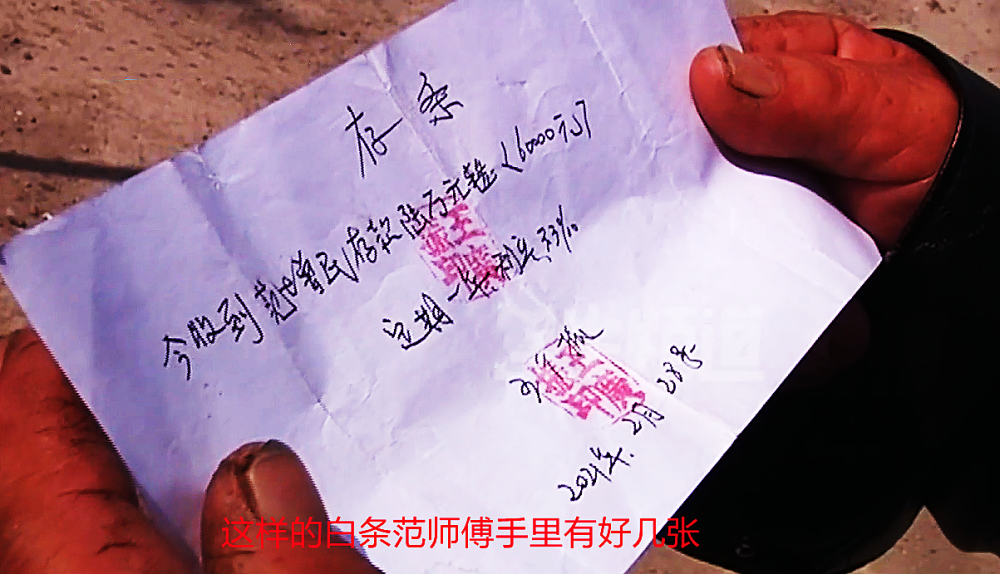 存条
今收到范增民存款陆万元整(60000元)
定期一年利息3.3%
2021年.2月28号
这样的白条范师傅手里有好几张